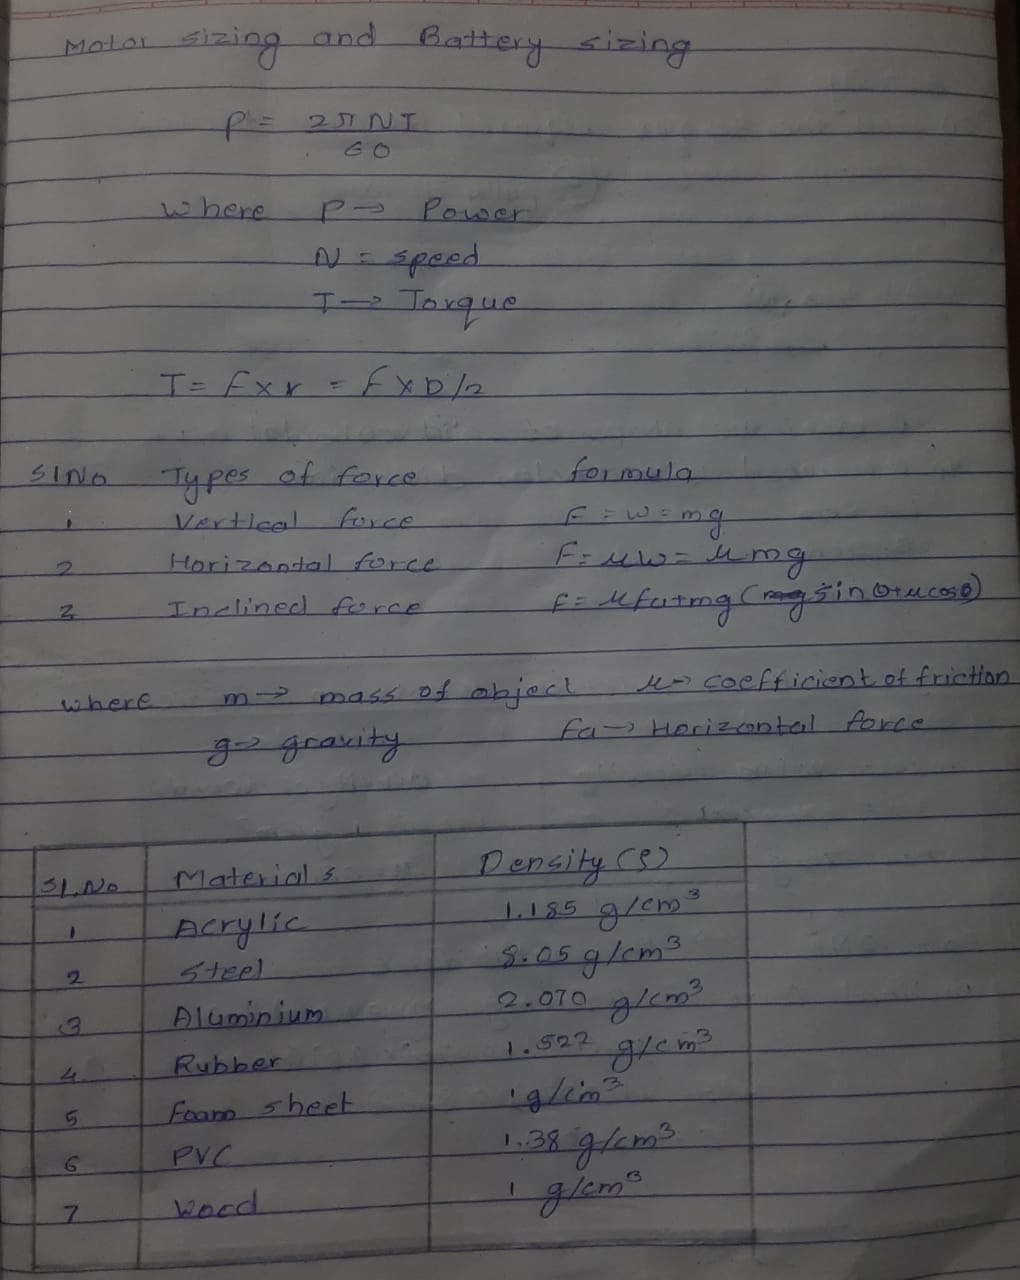 Motor sizing and Battery sizing
P = 2πNT
60
where P → Power
N = speed
T → Torque
T = F x r = F x D/2
Sl No Types of force formula
1 Vertical force F = W = mg
2 Horizontal force F = μW = μmg
3 Inclined force F = μfa+mg (sinθ+μcosθ)
where m → mass of object μ → coefficient of friction
g → gravity fa → Horizontal force
Sl.No Materials Density (ρ)
1 Acrylic 1.185 g/cm³
2 Steel 8.05 g/cm³
3 Aluminium 2.070 g/cm³
4 Rubber 1.522 g/cm³
5 Foam sheet 1 g/cm³
6 PVC 1.38 g/cm³
7 Wood 1 g/cm³